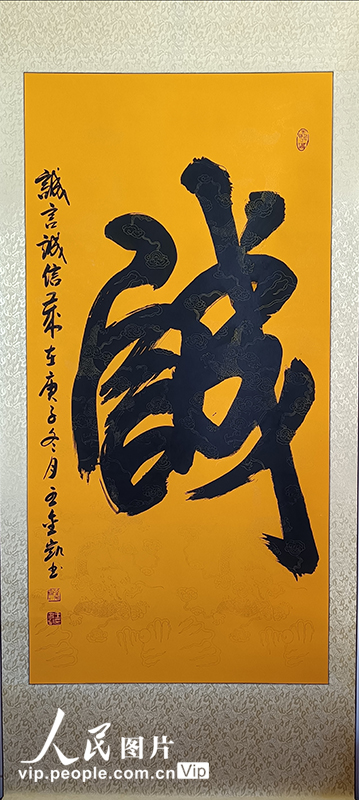 誠
誠言誠信歲在庚子冬月王金凱书
人民图片
vip.people.com.cn Vip